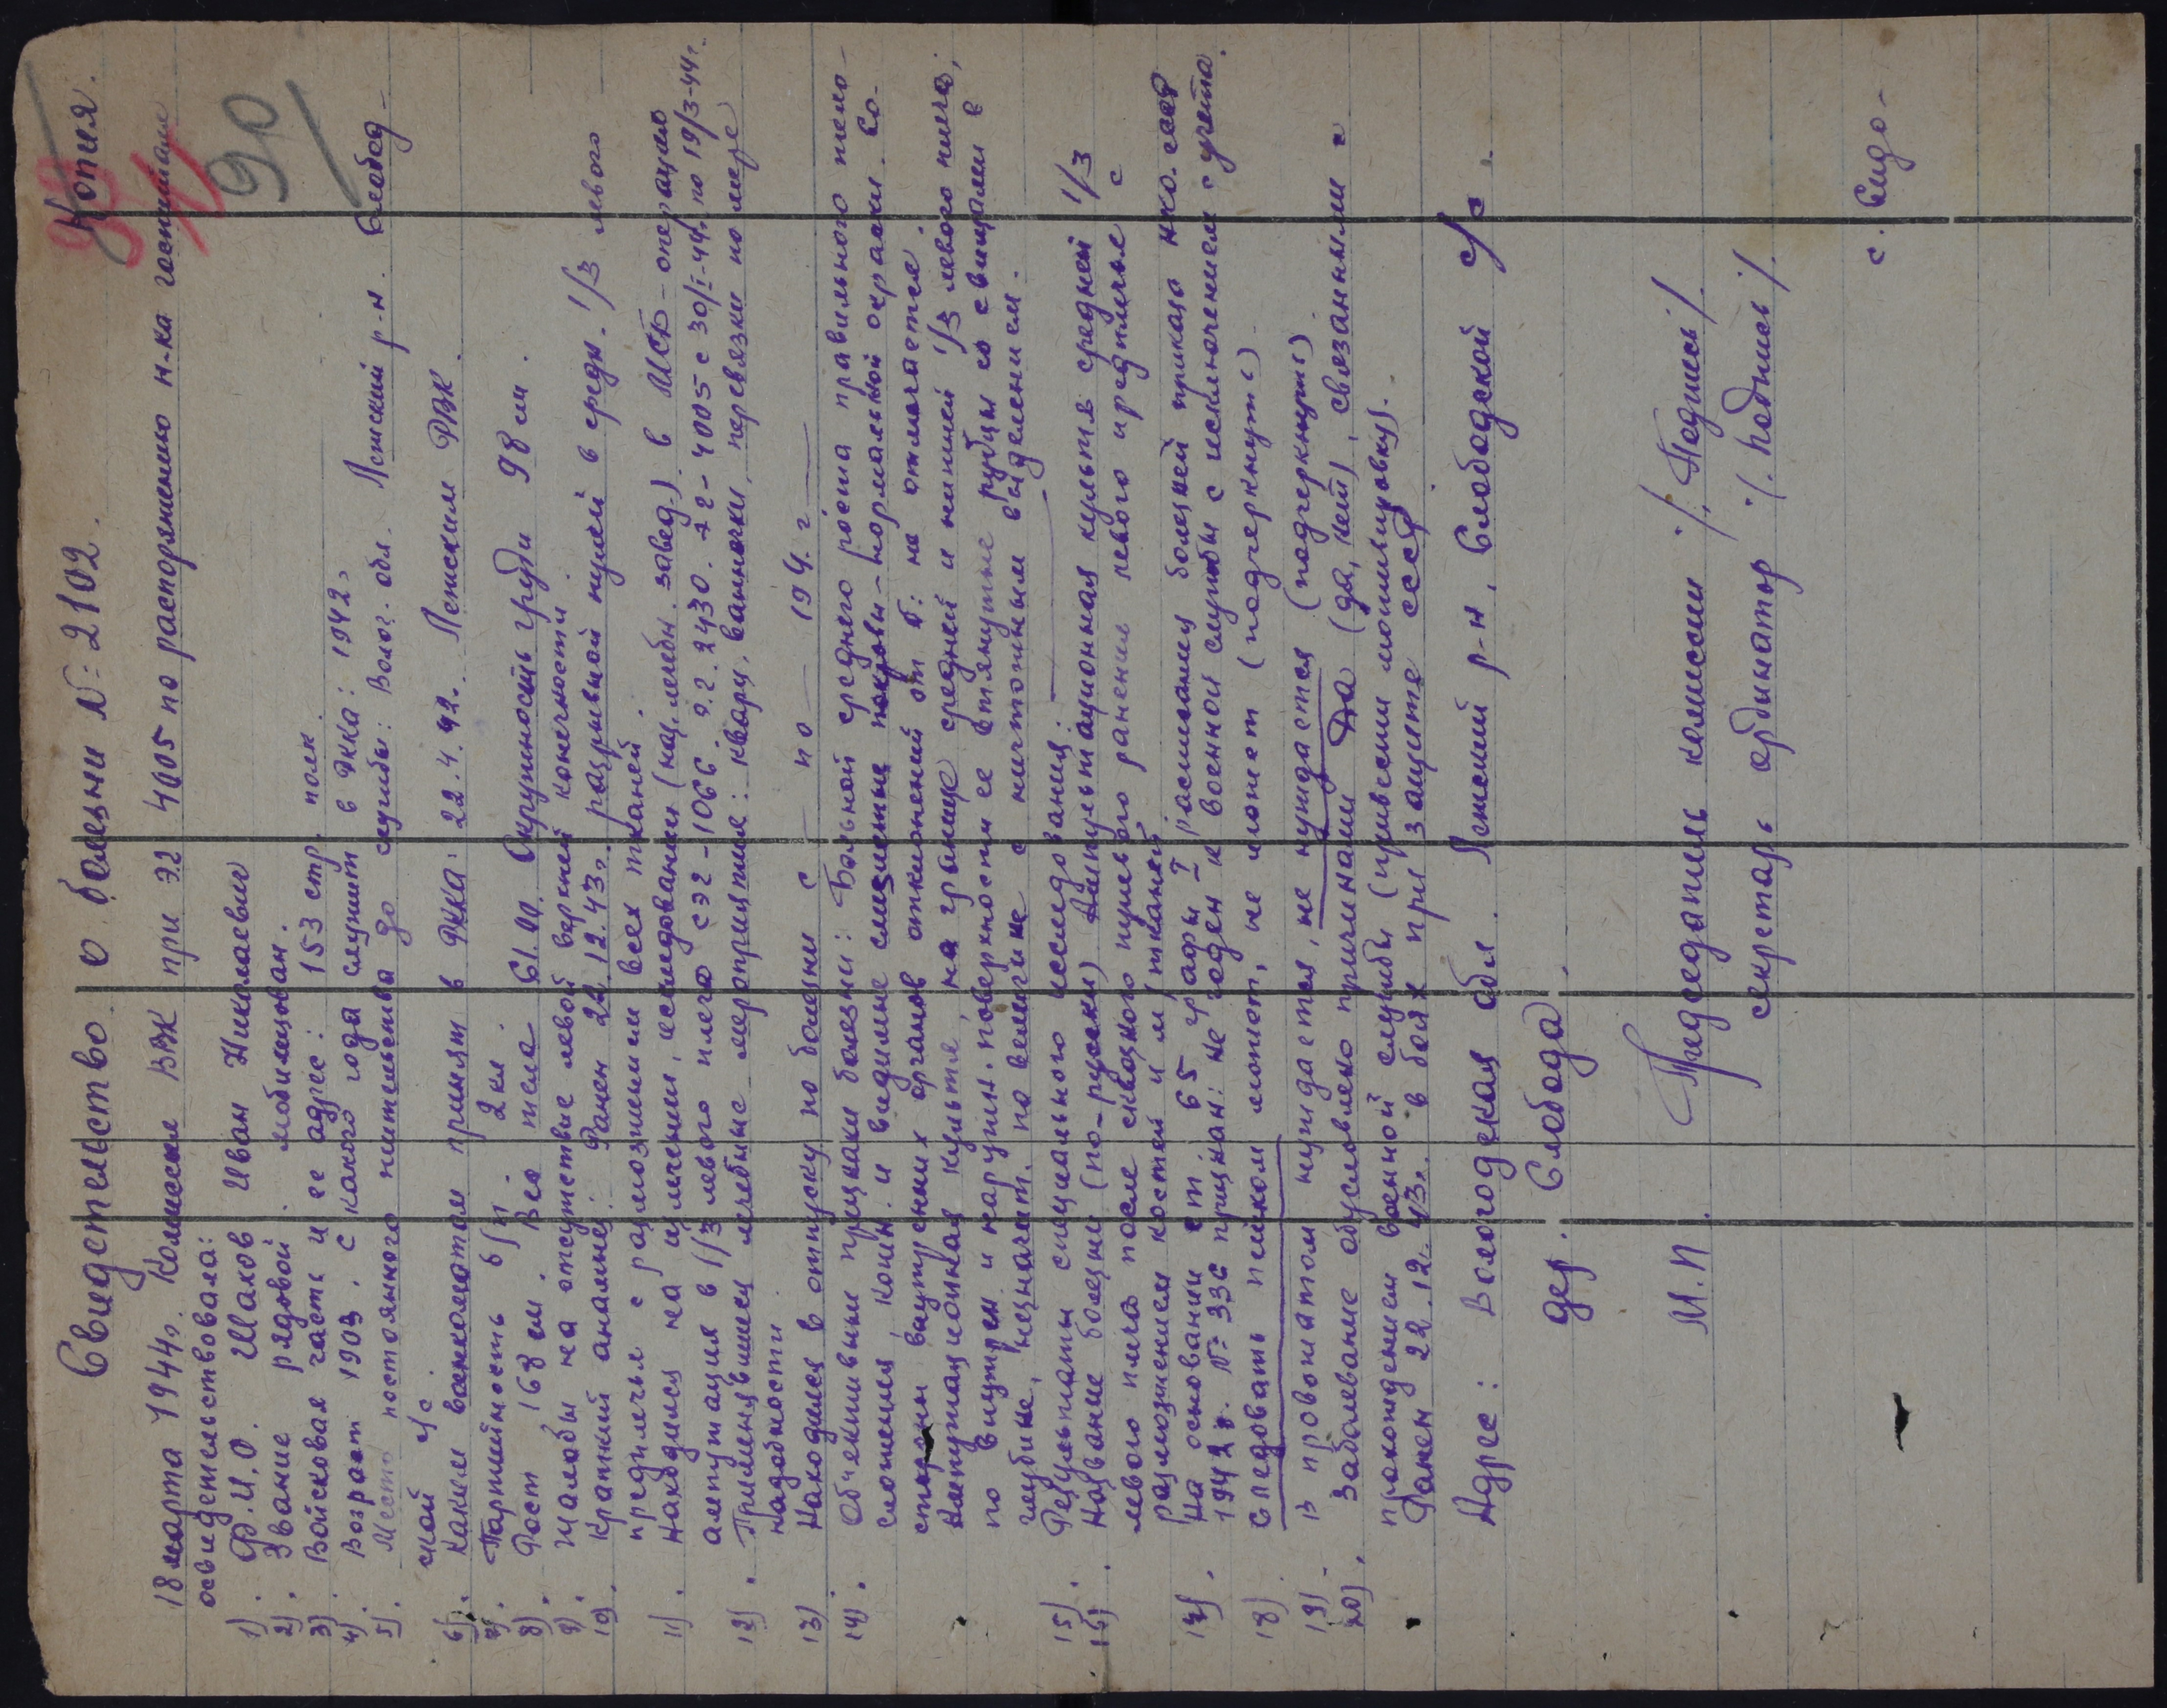 Копия.
90
Свидетельство о болезни №: 2102.
18 марта 1944г. Комиссия ВВК при ЭГ 4005 по распоряжению н-ка госпиталя
освидетельствовала:
1). Ф.И.О. Шахов Иван Николаевич
2). Звание рядовой. мобилизован.
3). Войсковая часть и ее адрес: 153 стр. полк.
4). Возраст 1903. с какого года служит в РККА: 1942г
5). Место постоянного жительства до службы: Волог. обл. Лежский р-н. Слобод-
ской с/с.
6). Каким военкоматом принят в РККА: 22.4.42. Лежским РВК.
7). Партийность б/п. 2 кл.
8). Рост 168 см. Вес тела 61.00. Окружность груди 98 см.
9). Жалобы на отсутствие левой верхней конечности.
10). Краткий анамнез: Ранен 22.12.43г. разрывной пулей в средн. 1/3 левого
предплечья с размозжением всех тканей.
11). Находился на излечении, исследовании (наз. лечебн. завед.) в МСБ - операция
ампутация в 1/3 левого плеча СЭГ - 1066. Э.Г. 2430. ЭГ - 4005 с 30/I-44г. по 19/3-44г.
12). Применявшиеся лечебные мероприятия: кварц, ванночки, перевязки по мере
надобности.
13) Находился в отпуску по болезни с — по — 194. г —
14). Объективные признаки болезни: Больной среднего роста правильного тело-
сложения, кожн. и видимые слизистые покровы - нормальной окраски. Со-
стороны внутренних органов отклонений от N: не отмечается.
Ампутационная культя, на границе средней и нижней 1/3 левого плеча;
по внутрен. и наружн. поверхности ее втянутые рубцы со свищами в
глубине, незначит. по величине с ничтожным выделением.
15). Результаты специального исследования: —
16). Название болезни (по-русски) Ампутационная культя средней 1/3
левого плеча после сквозного пулевого ранения левого предплечья с
размозжением костей и м/тканей
17). На основании ст. 65 графы I расписания болезней приказа НКО СССР
1942 г. №: 336 признан: не годен к военной службы с исключением с учета.
18). Следовать пешком может, не может (подчеркнуть)
19) В провожатом нуждается, не нуждается (подчеркнуть)
20). Заболевание обусловлено причинами Да (да, нет), связанными с
прохождением военной службы (привести мотивировку).
Ранен 22.12.43г. в боях при защите СССР
Адрес: Вологодская обл. Лежский р-н. Слободской с/с.
дер. Слобода.
М.П. Председатель комиссии /. Подпись /.
секретарь ординатор /. Подпись /.